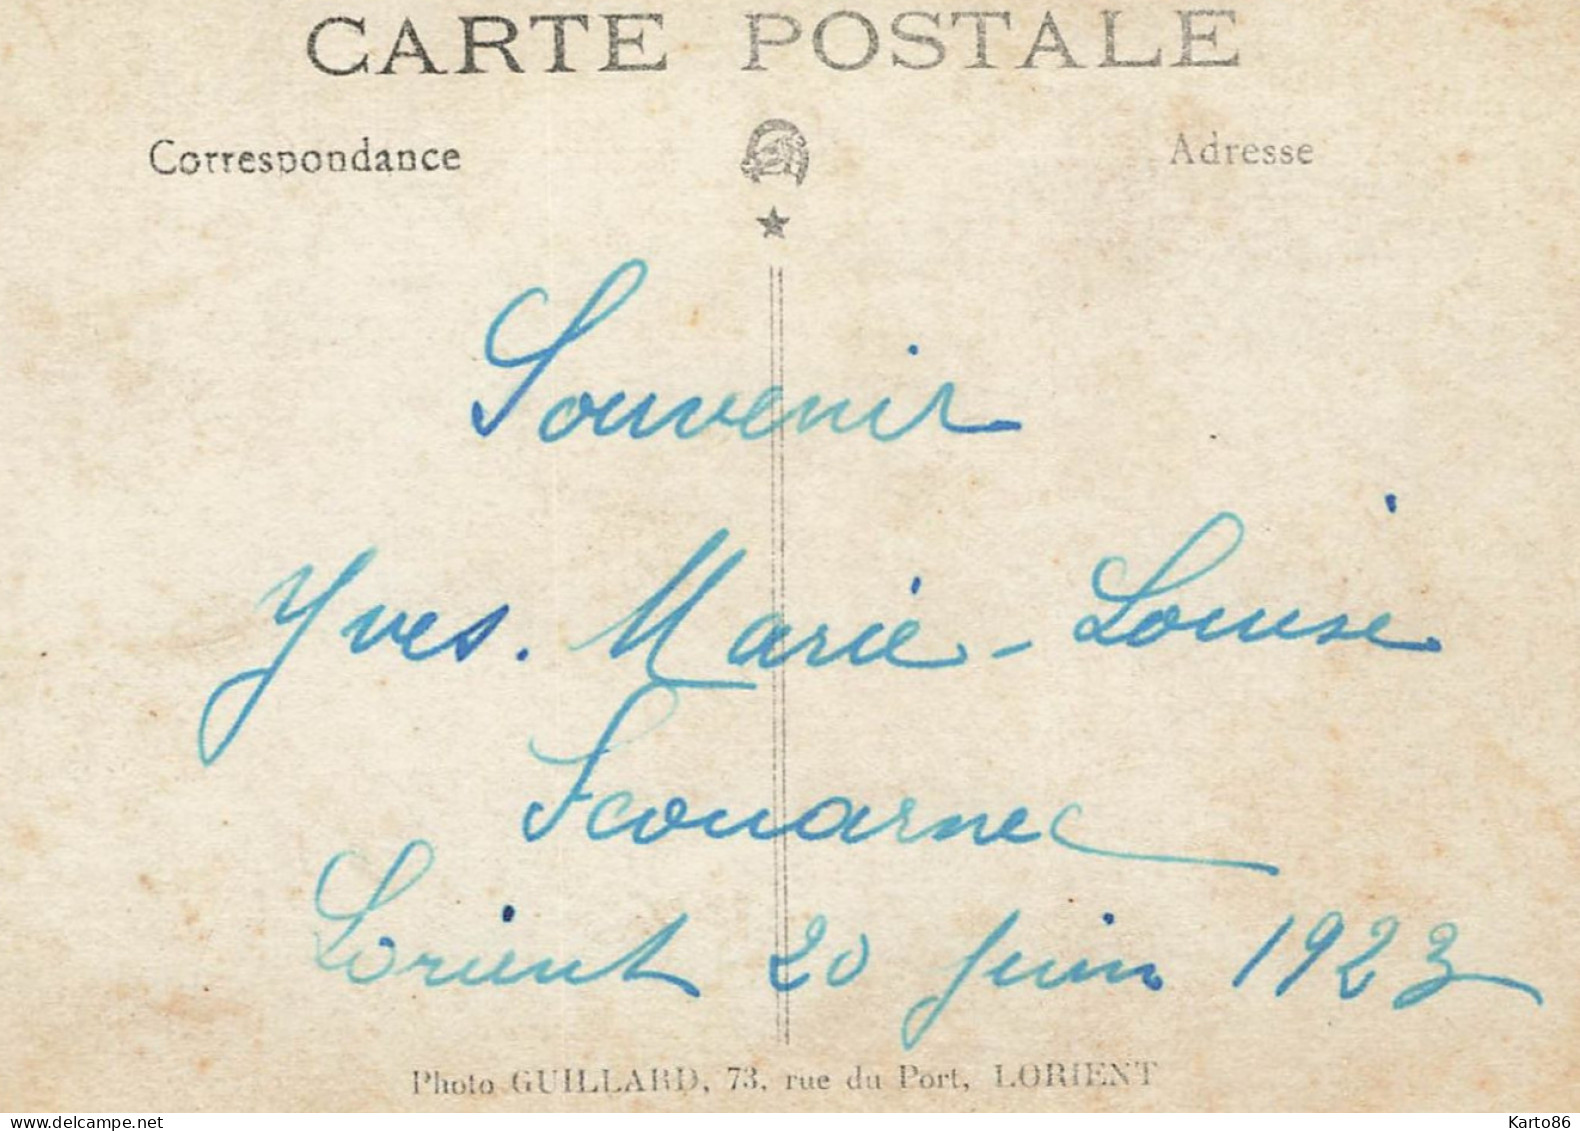 CARTE POSTALE
Correspondance
Adresse
Souvenir
Yves. Marie-Louise
Scouarnec
Lorient 20 juin 1923
Photo GUILLARD, 73, rue du Port, LORIENT
delcampe.net
Karto86